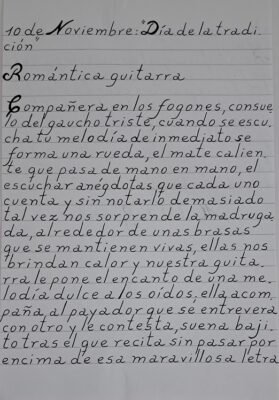 10 de Noviembre: "Día de la tradi
ción"
Romántica guitarra
Compañera en los fogones, consue
lo del gaucho triste, cuando se escu
cha tu melodía de inmediato se
forma una rueda, el mate calien
te que pasa de mano en mano, el
escuchar anégdotas que cada uno
cuenta y sin notarlo demasiado
tal vez nos sorprende la madruga
da, alrededor de unas brasas
que se mantienen vivas, ellas nos
brindan calor y nuestra guita
rra le pone el encanto de una me
lodía dulce a los oídos, ella acom
paña, al payador que se entrevera
con otro y le contesta, suena baji
to tras el que recita sin pasar por
encima de esa maravillosa letra